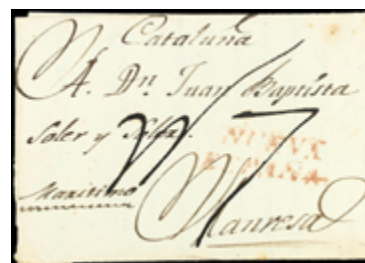 Cataluña
A. Dn Juan Baptista
Soler y
NUEVA
ESPAÑA
Maritimo
Manresa